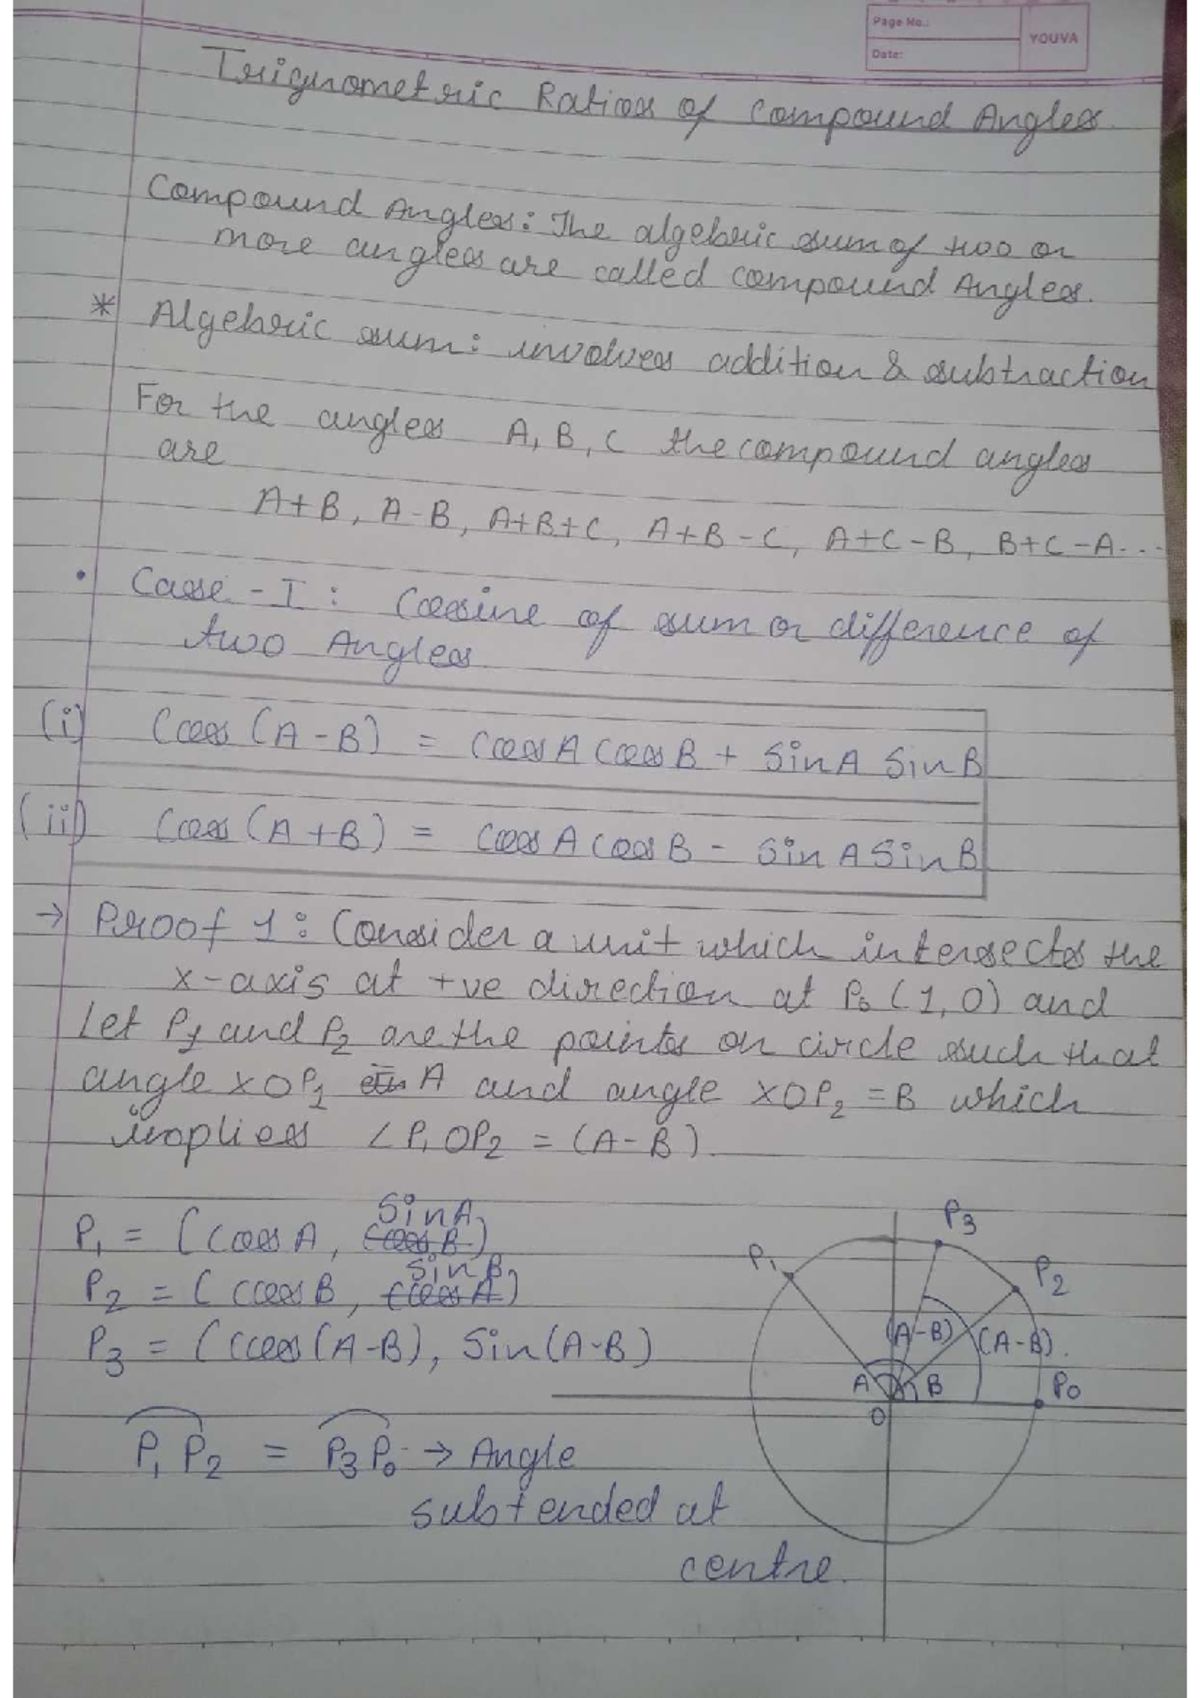 Page No.:
YOUVA
Date:
Trignometric Ratios of Compound Angles
Compound Angles: The algebric sum of two or
more angles are called compound Angles.
* Algebric sum: involves addition & subtraction
For the angles A, B, C the compound angles
are
A+B, A-B, A+B+C, A+B-C, A+C-B, B+C-A...
• Case-I: Cosine of sum or difference of
two Angles
(i) Cos(A-B) = CosA CosB + SinA SinB
(ii) Cos(A+B) = CosA CosB - SinA SinB
→ Proof 1: Consider a unit which intersects the
x-axis at +ve direction at P₀ (1,0) and
Let P₁ and P₂ are the points on circle such that
angle XOP₁ = A and angle XOP₂ = B which
implies ∠P₁OP₂ = (A-B).
P₁ = (CosA, SinA)
P₂ = (CosB, SinB)
P₃ = (Cos(A-B), Sin(A-B)
P₁
P₃
P₂
(A-B)
(A-B).
A
B
P₀
O
P₁P₂ = P₃P₀ → Angle
subtended at
centre.